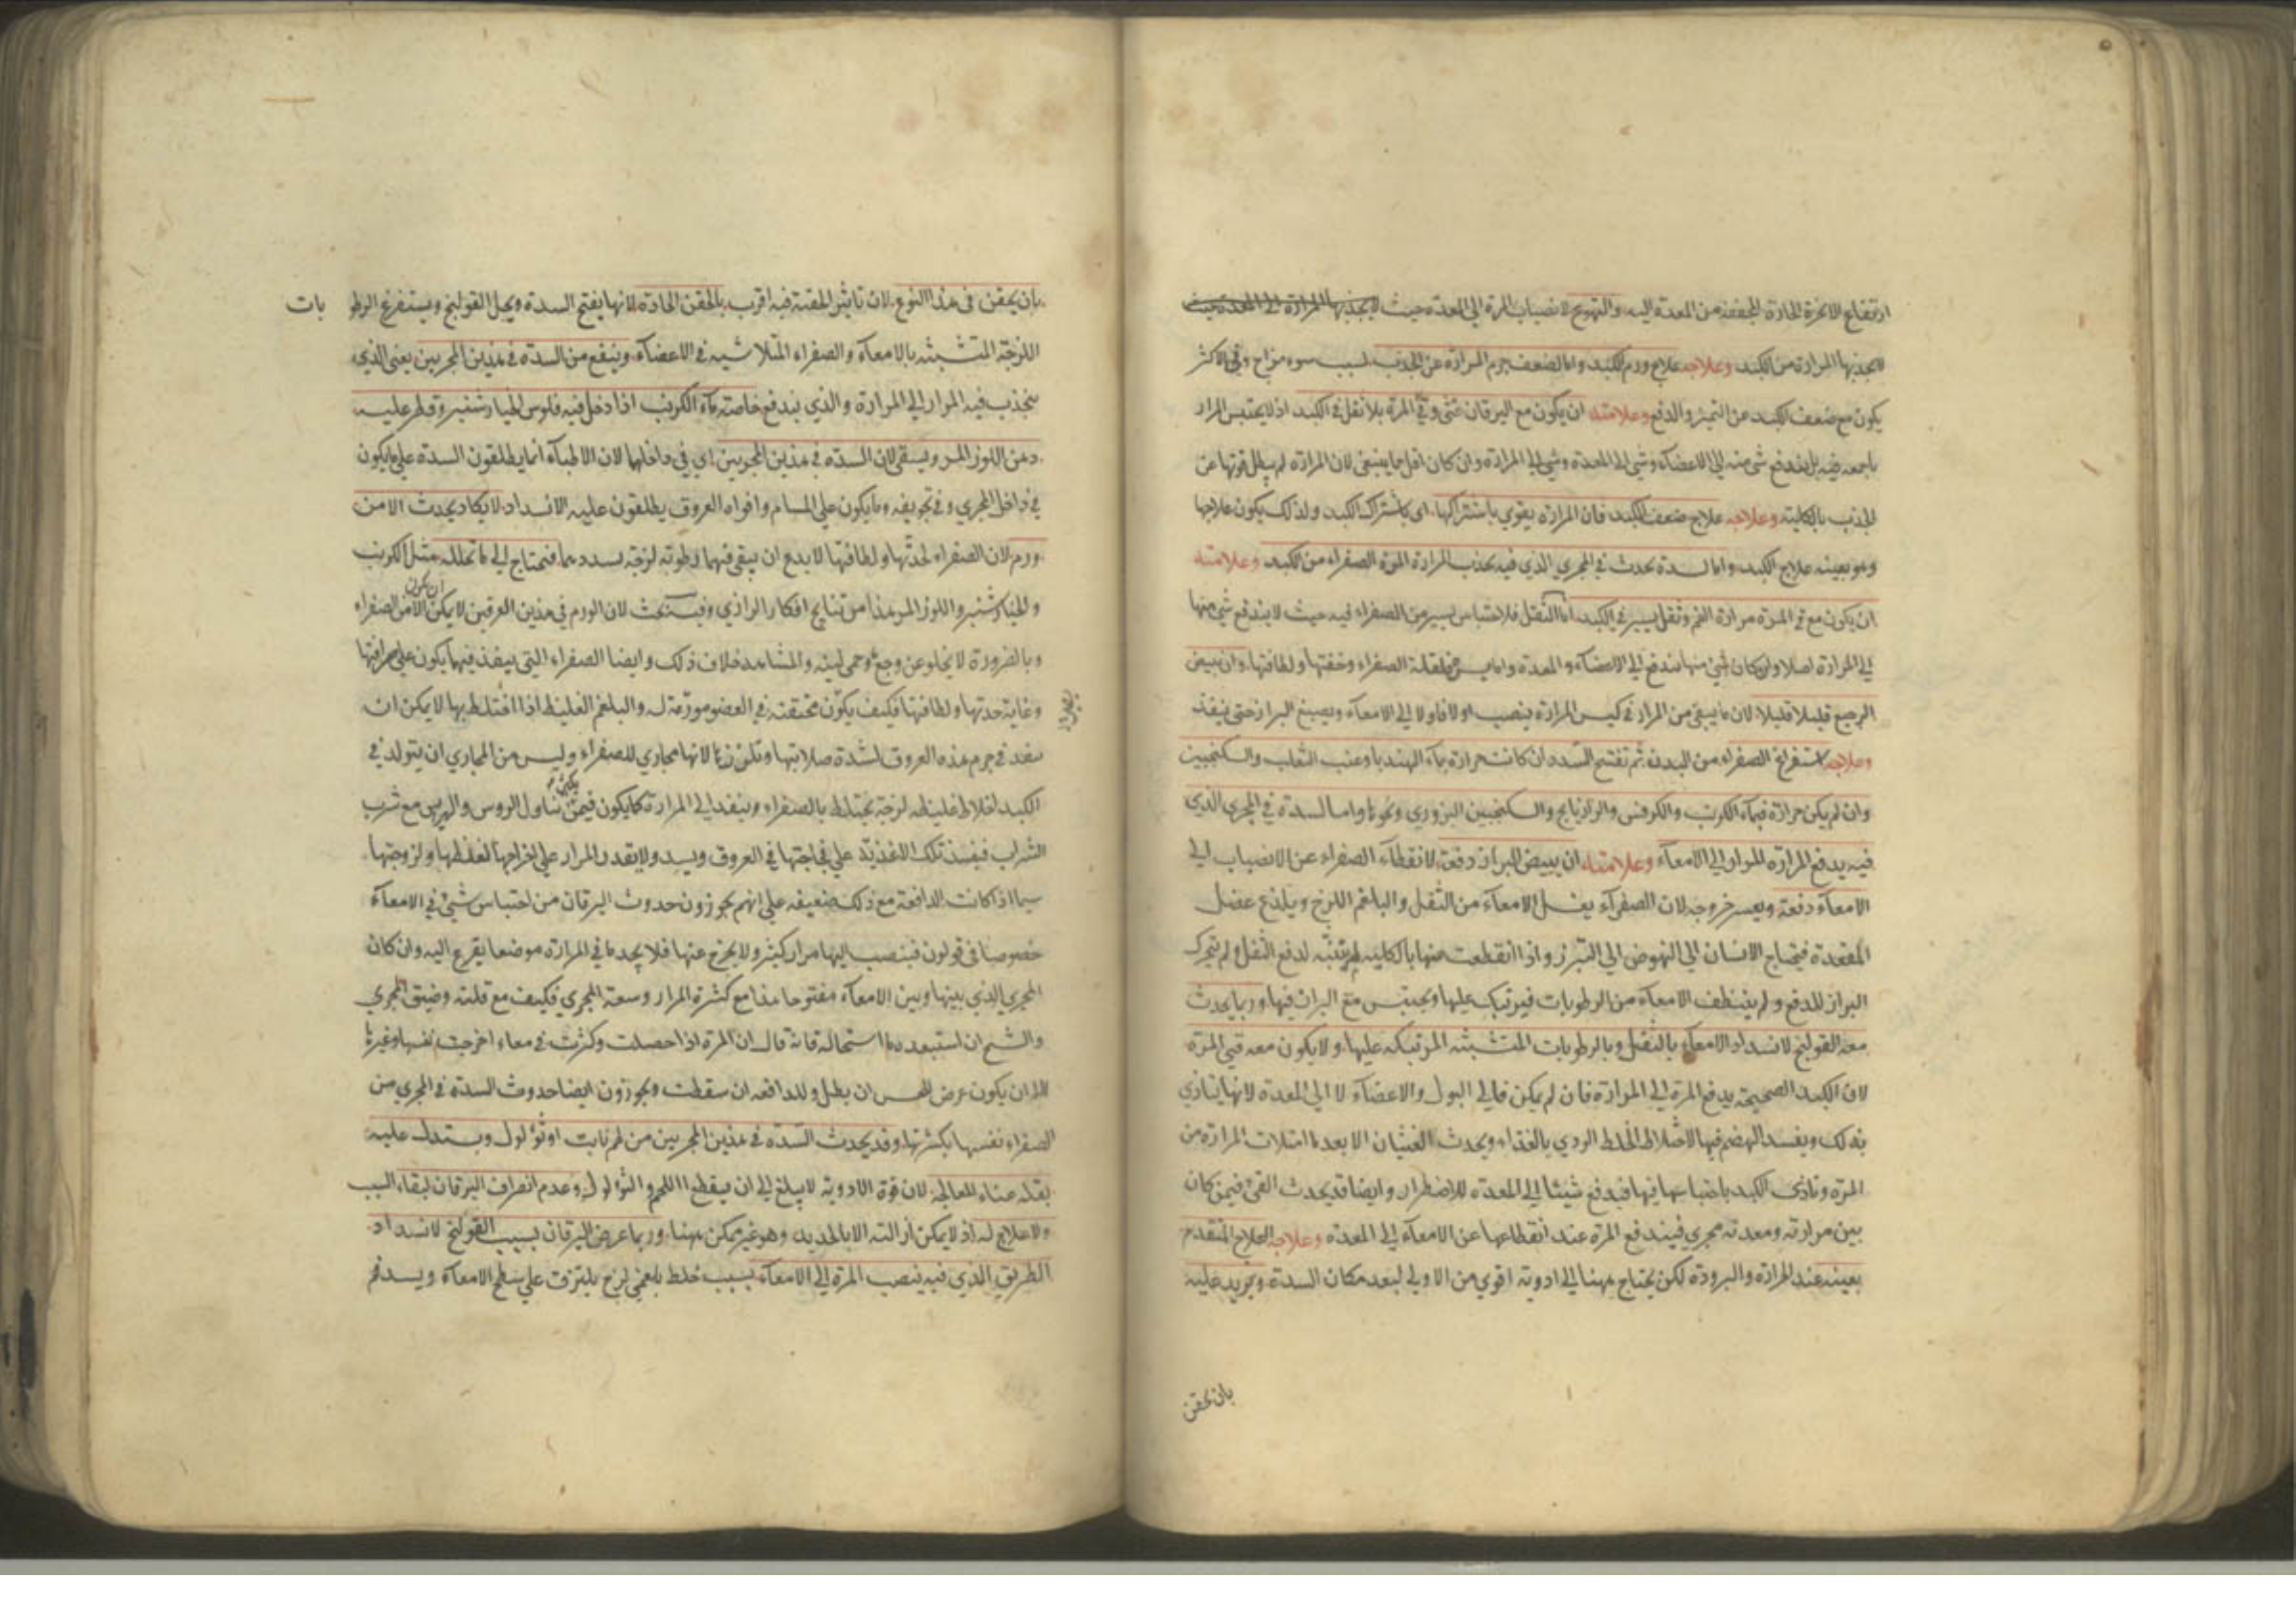 ارتفاع الابخرة الحادة المجففة من المعدة اليه والتهوع لانصباب المرة الى المعدة حيث لايجذبها المرارة الى المعدة حيث
لايجذبها المرارة من الكبد وعلاجه علاج ورم الكبد واما لضعف جرم المرارة عن الجذب لسبب سوء مزاج وفي الاكثر
يكون مع ضعف الكبد عن التميز والدفع وعلامته ان يكون مع اليرقان غثى وقئ المرة بلا ثقل في الكبد اذ لا يحتبس المرار
باجمعه فيه بل يندفع شئ منه الى الاعضاء وشئ الى المعدة وشئ الى المرارة وان كان اقل مما ينبغى لان المرارة لم يبطل قوتها عن
الجذب بالكلية وعلاجه علاج ضعف الكبد فان المرارة يقوي باشتراكها اى باشتراك الكبد ولذلك يكون علاجها
وهو بعينه علاج الكبد واما لسدة تحدث في المجري الذي فيه يجذب المرارة المرة الصفراء من الكبد وعلامته
ان يكون مع قئ المرة مرارة الفم وثقل يسير في الكبد اما الثقل فلاحتباس يسير من الصفراء فيه حيث لا يندفع شئ منها
الى المرارة اصلا وان كان شئ منها يندفع الى الاعضاء والمعدة واما يسير فلقلة الصفراء وخفتها ولطافتها وان يبيض
الرجيع قليلا قليلا لان ما يبقى من المرار في كيس المرارة ينصب اولا فاولا الى الامعاء ويصبغ البراز حتى ينفذ
وعلاجه استفراغ الصفراء من البدن ثم تفتيح السدد ان كانت حرارة بماء الهندبا وعنب الثعلب والسكنجبين
وان لم يكن حرارة فبماء الكرنب والكرفس والرازيانج والسكنجبين البزوري ونحوها واما لسدة في المجرى الذي
فيه يدفع المرارة المرار الى الامعاء وعلامته ان يبيض البراز دفعة لانقطاع الصفراء عن الانصباب الى
الامعاء دفعة ويعسر خروجه لان الصفراء يغسل الامعاء من الثفل والبلغم اللزج ويلذع عضل
المقعدة فيحتاج الانسان الى النهوض الى التبرز واذا انقطعت منها بالكلية لم يتنبه لدفع الثفل ولم يتحرك
البراز للدفع ولم ينظف الامعاء من الرطوبات فيرتبك عليها ويحتبس مع البراز فيها وربما يحدث
معه القولنج لانسداد الامعاء بالثفل وبالرطوبات المتشبثة المرتبكة عليها ولا يكون معه قئ المرة
لان الكبد الصحيحة يدفع المرة الى المرارة فان لم يكن فالى البول والاعضاء لا الى المعدة لانها يتاذي
بذلك ويفسد الهضم فيها لاختلاط الخلط الردي بالغذاء ويحدث الغثيان الا بعد ما امتلات المرارة من
المرة وتاذى الكبد باحتباسها فيها فيدفع شيئا الى المعدة للاضطرار وايضا قد يحدث القئ فيمن كان
بين مرارته ومعدته مجرى فيندفع المرة عند انقطاعها عن الامعاء الى المعدة وعلاجه العلاج المتقدم
بعينه عند الحرارة والبرودة لكن يحتاج ههنا الى ادوية اقوي من الاولى لبعد مكان السدة ويزيد عليه
بان يحقن
بان يحقن في هذا النوع لان تاثير الحقنة فيه اقرب بالحقن الحادة لانها يفتح السدة ويحل القولنج ويستفرغ الرطو بات
اللزجة المتشبثة بالامعاء والصفراء المتلاشية في الاعضاء وينفع من السدة في هذين المجريين يعنى الذي
ينجذب فيه المرار الى المرارة والذي يندفع خاصة ماء الكرنب اذا دخل فيه فلوس الخيارشنبر وقطر عليه
دهن اللوز المر ويسقى لان السدة في هذين المجريين اي في داخلهما لان الاطباء انما يطلقون السدة على ما يكون
في داخل المجري وفي تجويفه وما يكون على المسام وافواه العروق يطلقون عليه الانسداد لا يكاد يحدث الا من
ورم لان الصفراء لحدتها ولطافتها لا يدع ان يبقى فيهما رطوبة لزجة يسددهما فيحتاج الى ما تحلله مثل الكرنب
والخيارشنبر واللوز المر هذا من نتايج افكار الرازي وفيه بحث لان الورم في هذين العرقين لا يمكن ان يكون الا من الصفراء
وبالضرورة لا يخلو عن وجع وحمى لينة والمشاهد خلاف ذلك وايضا الصفراء التى ينفذ فيهما يكون على صرافتها
وغاية حدتها ولطافتها فكيف يكون محتقنة في العضو مورمة له والبلغم الغليظ اذا اختلط بها لا يمكن ان
ينفذ في جرم هذه العروق لشدة صلابتها وتلززها لانها مجاري للصفراء وليس من المجاري ان يتولد في
الكبد اخلاط غليظة لزجة يختلط بالصفراء وينفذ الى المرارة كما يكون فيمن يكثر تناول الروس والهريس مع شرب
الشراب فينفذ تلك الاغذية على فجاجتها في العروق ويسد ولا يقدر المرار على اخراجها لغلظها ولزوجتها
سيما اذا كانت الدافعة مع ذلك ضعيفه على انهم يجوزون حدوث اليرقان من احتباس شئ في الامعاء
خصوصا في قولون فينصب اليها مرار كثير ولا يخرج عنها فلا يجد ما في المرارة موضعا يفرغ اليه وان كان
المجري الذي بينها وبين الامعاء مفتوحا هذا مع كثرة المرار وسعة المجري فكيف مع قلته وضيق المجري
والشيخ ان استبعد هذا استحاله فانه قال ان المرة اذا حصلت وكثرت في معاء اخرجت نفسها وغيرها
الا ان يكون عرض للحس ان بطل وللدافعه ان سقطت ويجوزون ايضا حدوث السدة في المجرى من
الصفراء نفسها بكثرتها وقد يحدث السدة في هذين المجريين من لحم نابت او ثؤلول ويستدل عليه
بقلة غناء المعالجة لان قوة الادوية لا يبلغ الى ان يقطع اللحم والثؤلول وعدم انصراف اليرقان لبقاء السبب
ولا علاج له اذ لا يمكن ازالته الا بالحديد وهو غير ممكن ههنا وربما عرض اليرقان بسبب القولنج لانسداد
الطريق الذي فيه ينصب المرة الى الامعاء بسبب خلط بلغمي لزج يلتزق على سطح الامعاء ويسد فم